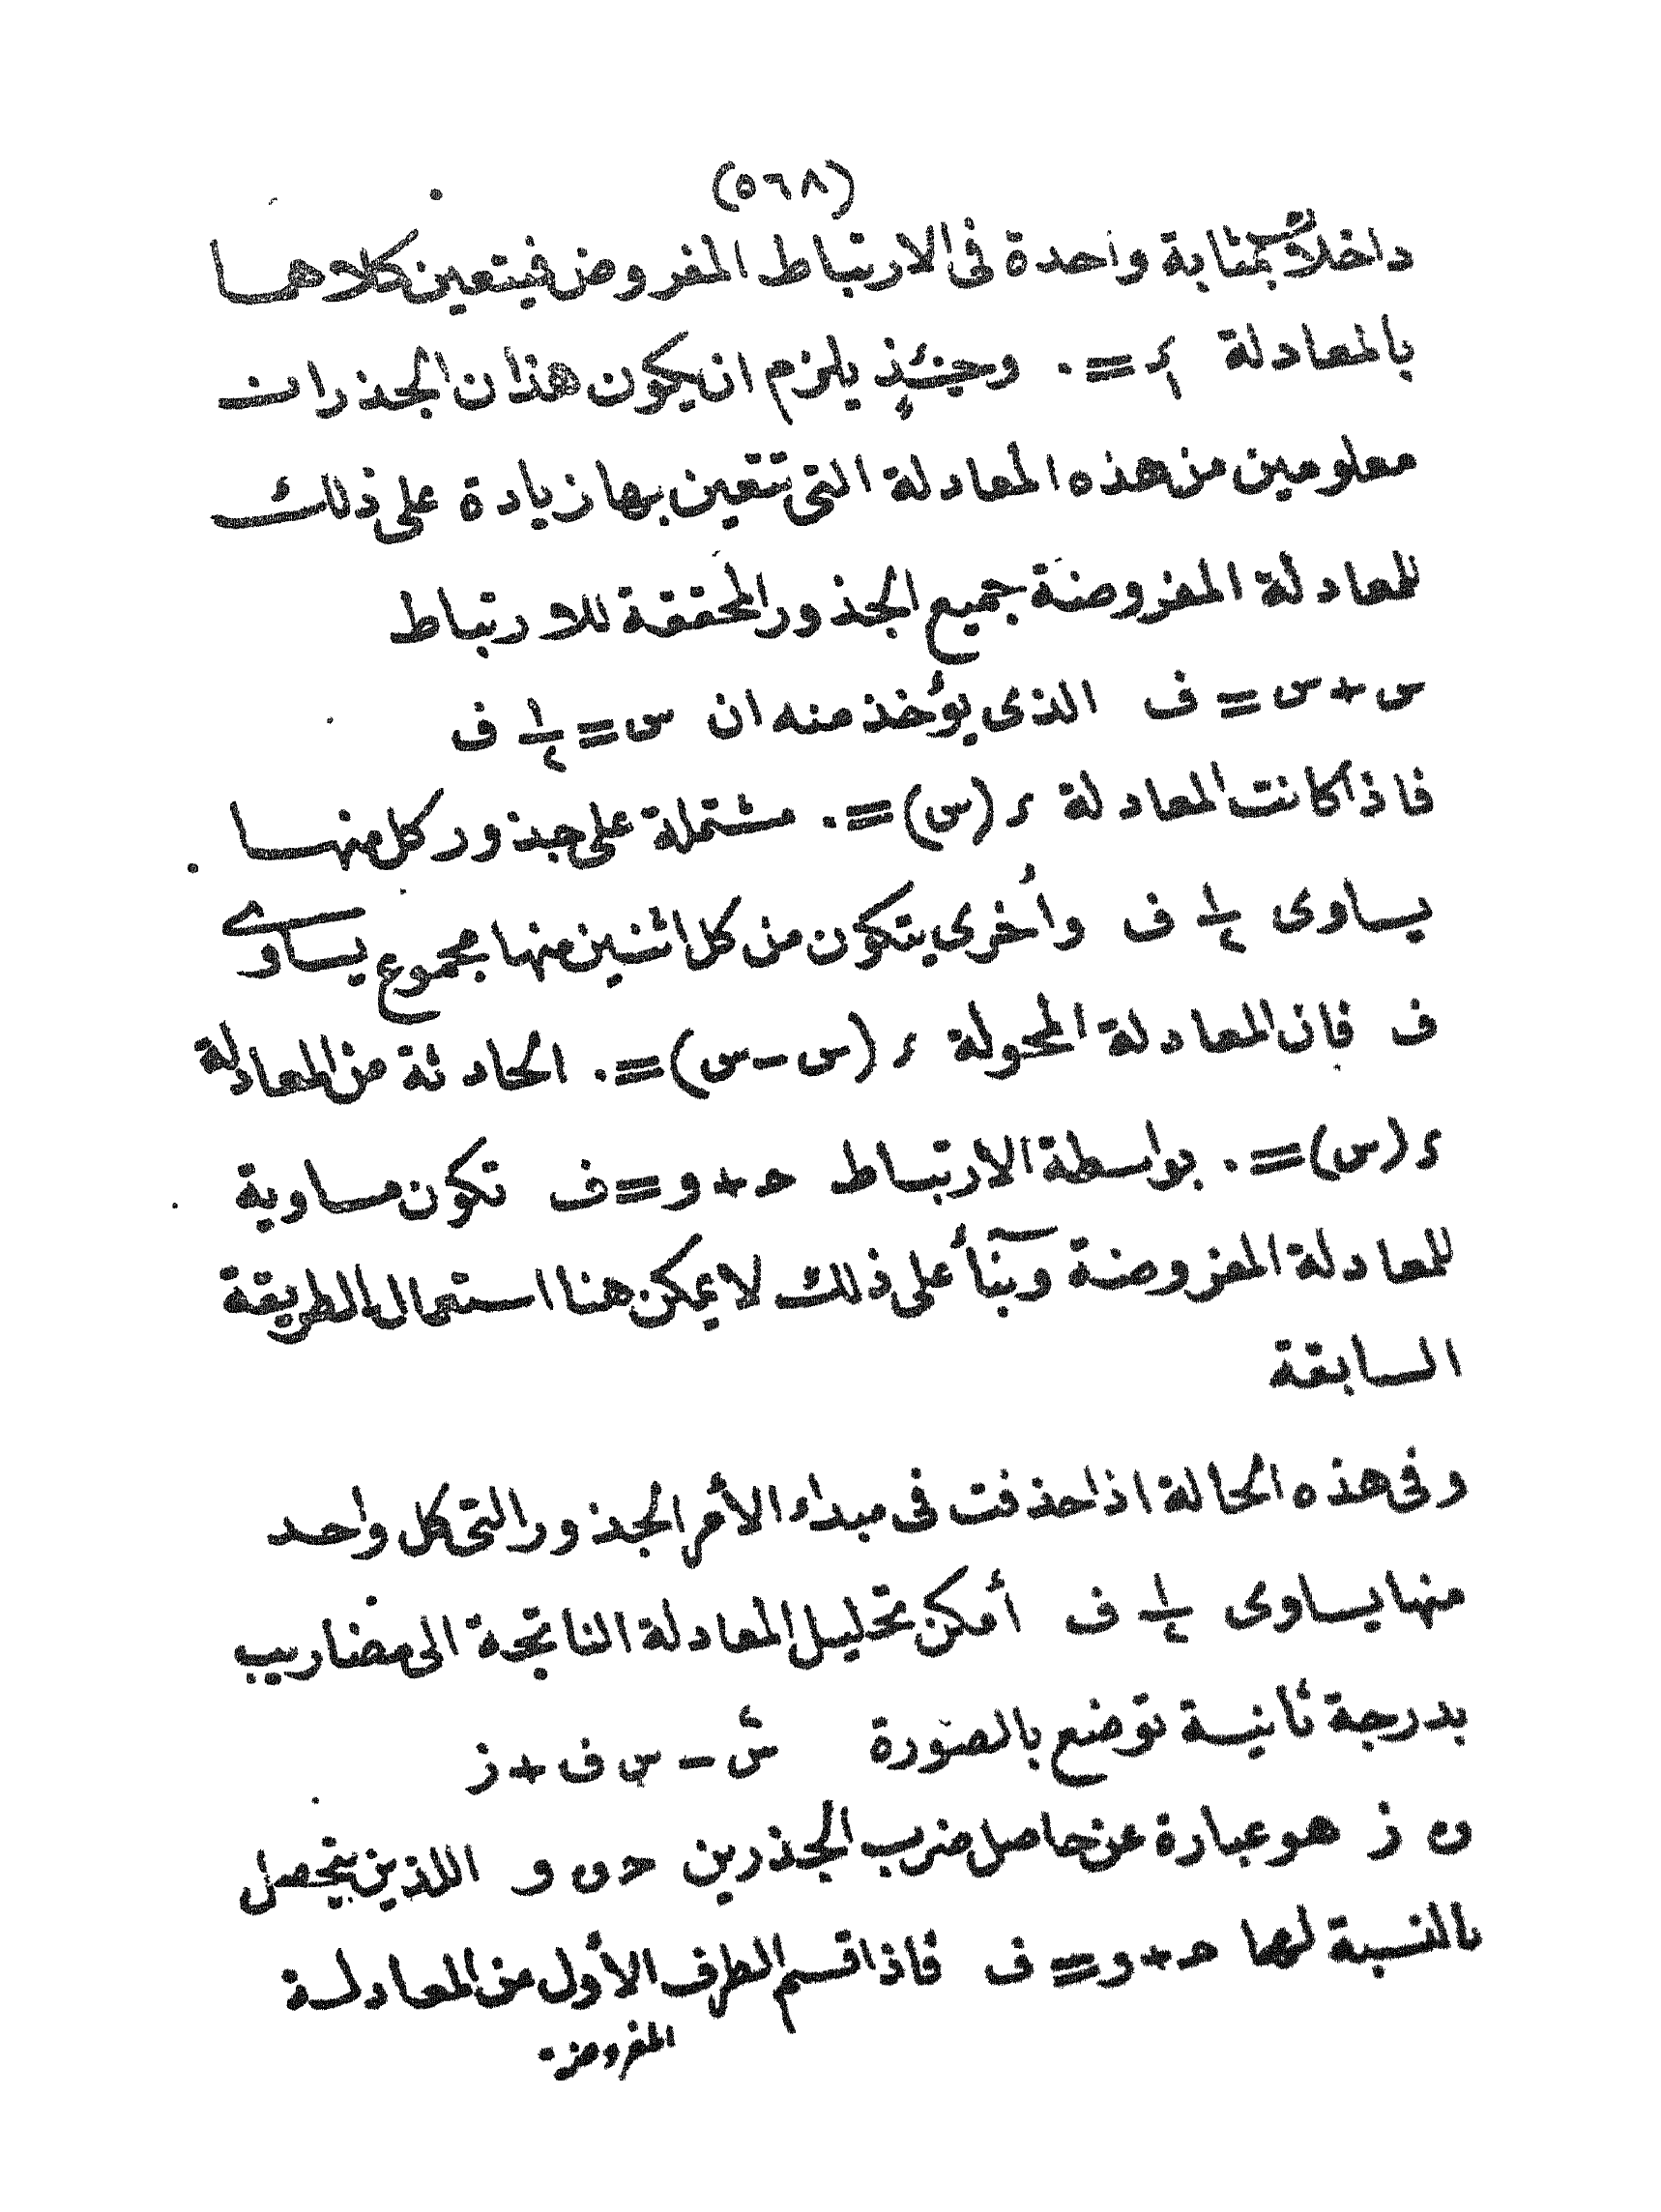 (٥٦٨)
داخلاً بمثابة واحدة فى الارتباط المفروض فيتعين كلاهما
بالمعادلة ء١ = ٠ وحينئذ يلزم ان يكون هذان الجذران
معلومين من هذه المعادلة التى تتعين بها زيادة على ذلك
للمعادلة المفروضة جميع الجذور المحققة للارتباط
س + س = ف الذى يؤخذ منه ان س = ١/٢ ف
فاذا كانت المعادلة ء (س) = ٠ مشتملة على جذور كل منها
يساوى ١/٢ ف وأخرى يتكون من كل اثنين منها مجموع يساوى
ف فان المعادلة المحولة ء (س - س) = ٠ الحادثة من المعادلة
ء (س) = ٠ بواسطة الارتباط حـ + و = ف تكون مساوية
للمعادلة المفروضة وبنآً على ذلك لا يمكن هنا استعمال الطريقة
السابقة
وفى هذه الحالة اذا حذفت فى مبداء الأمر الجذور التى كل واحد
منها يساوى ١/٢ ف أمكن تحليل المعادلة الناتجة الى مضاريب
بدرجة ثانية توضع بالصورة س٢ - س ف + ز
ں ز هو عبارة عن حاصل ضرب الجذرين حـ ں و اللذين يتحصل
بالنسبة لهما حـ + و = ف فاذا قسم الطرف الأول من المعادلة
المفروضة